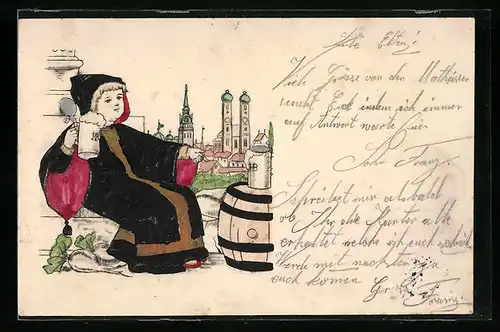 Liebe Eltern!
Viele Grüsse von den Mathäser
sendet Euch indem ich immer
auf Antwort warte Euer
Sohn Franz.
Schreibet mir als bald
ob Ihr die Karten alle
erhaltet welche ich euch schrib
Werde mit nachten ja
euch komen Gr
Franz.